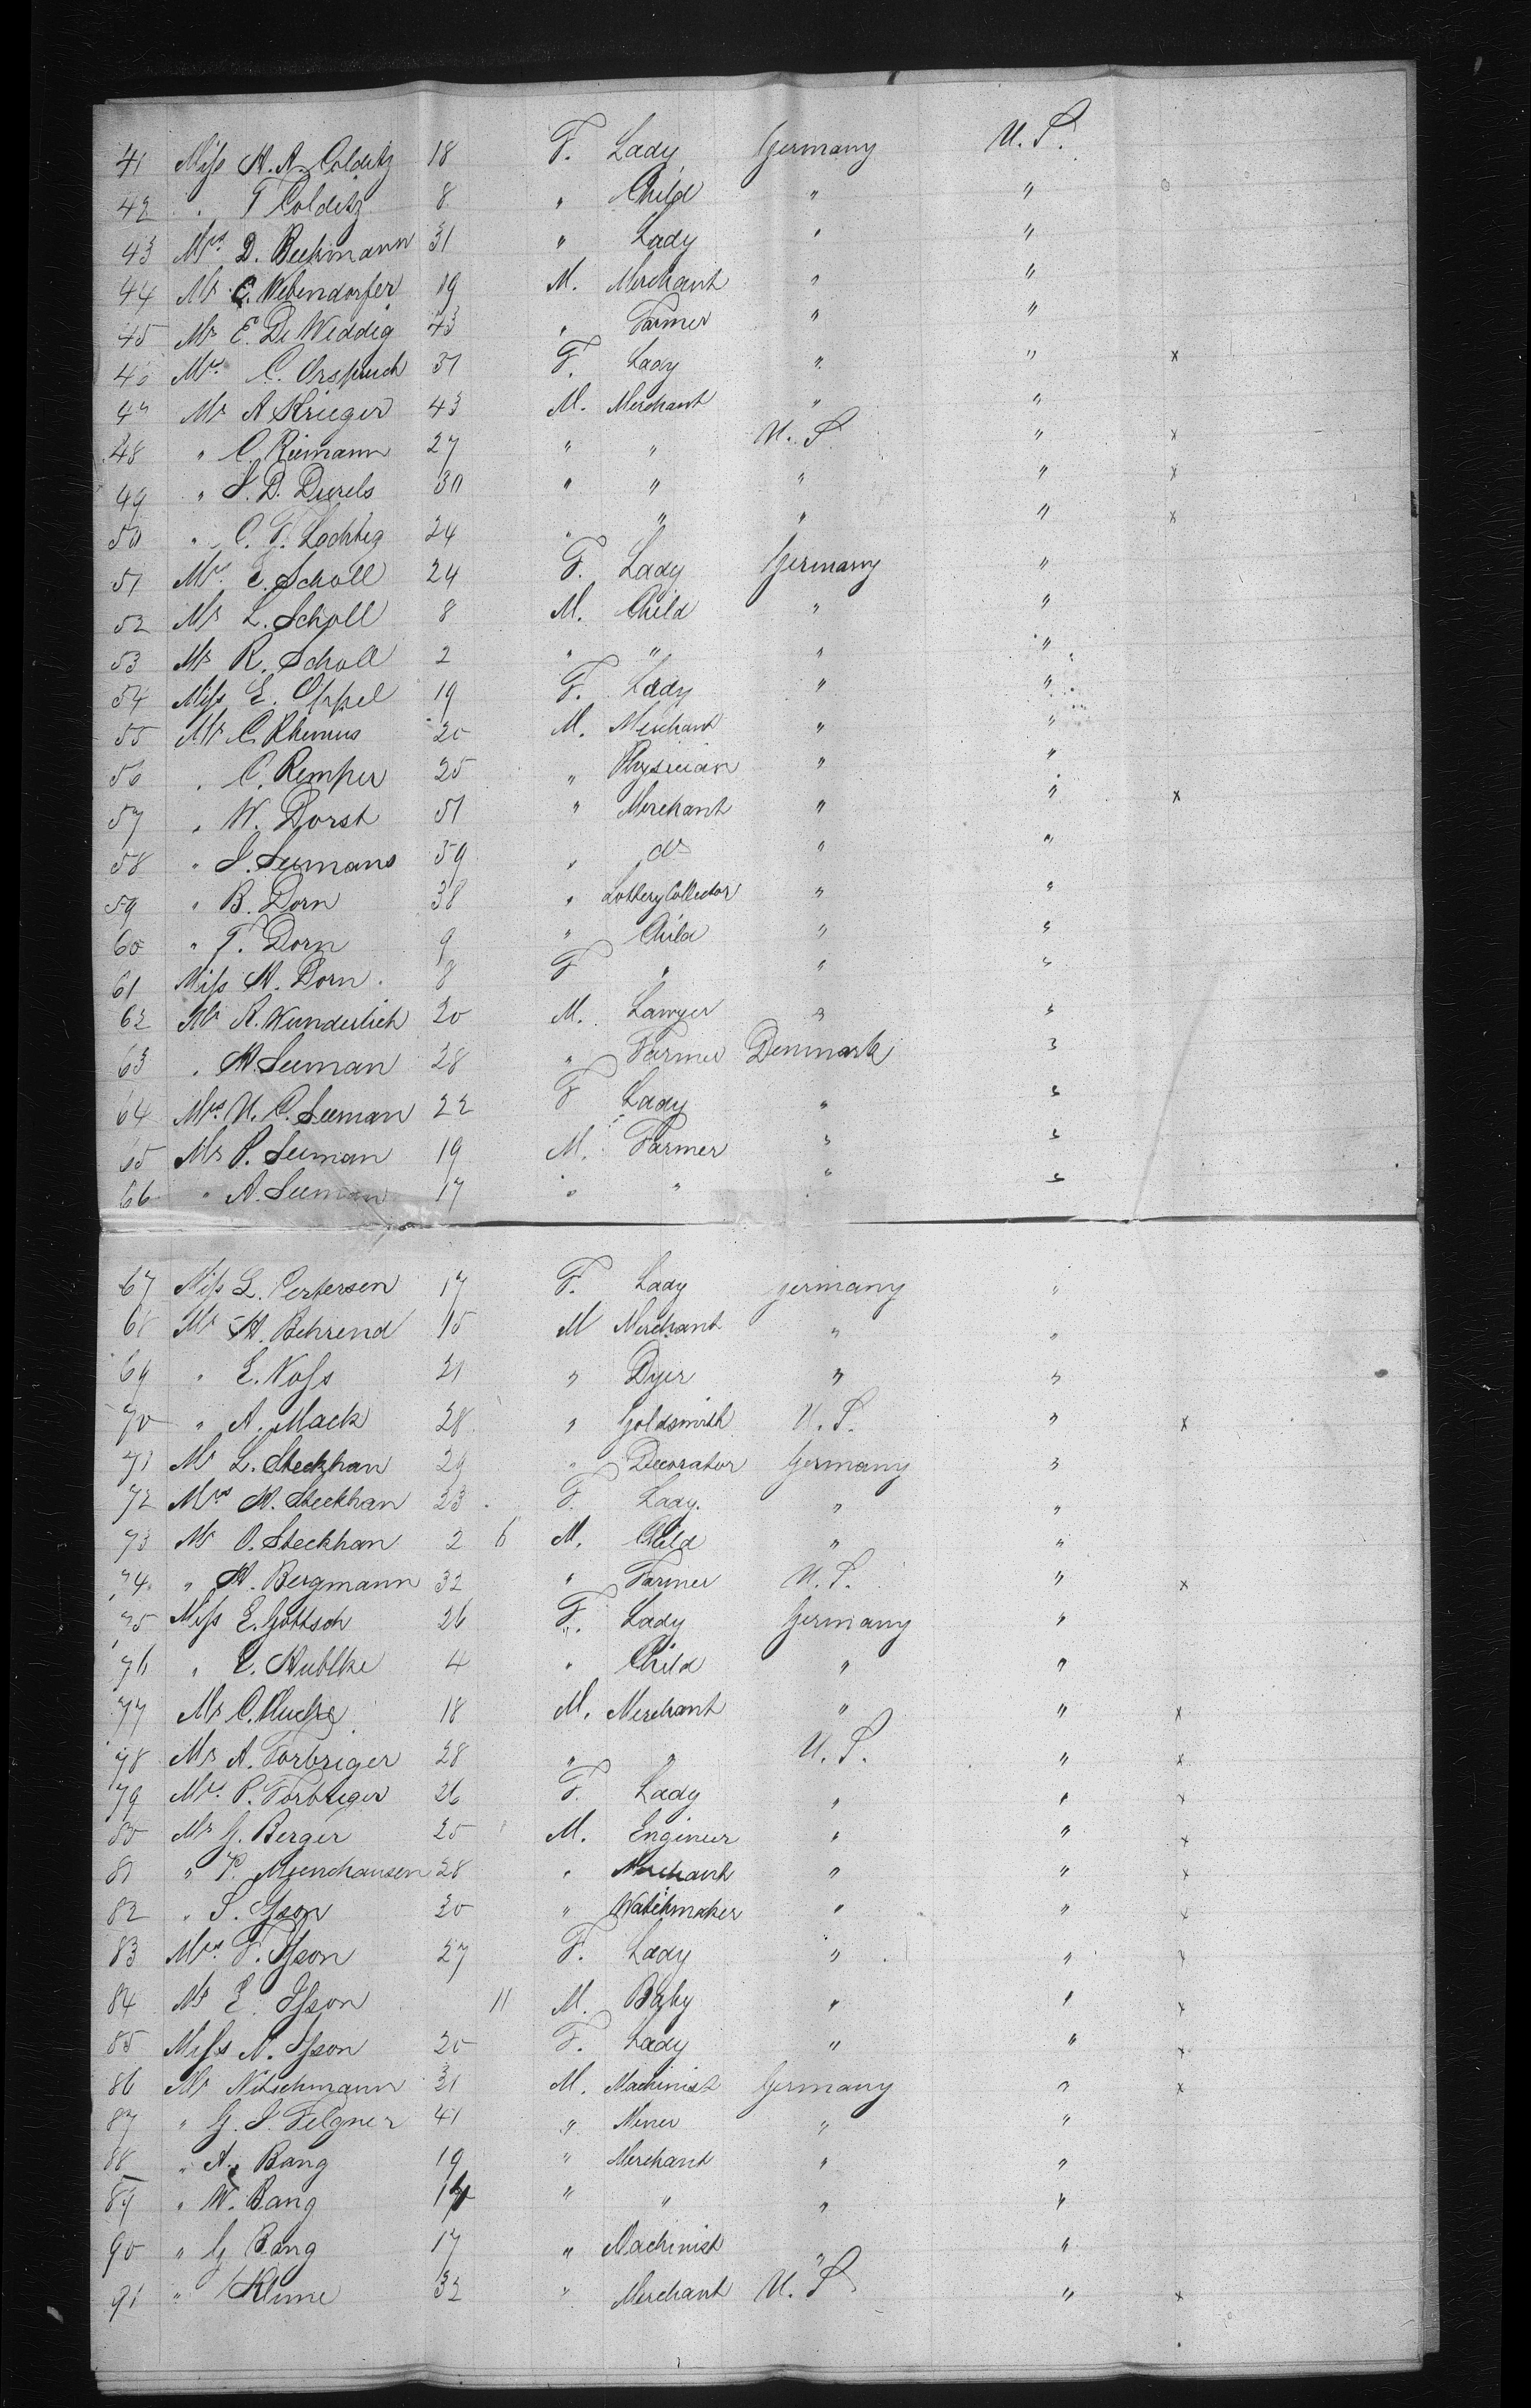 41 Miss H. A. Colditz 18 F. Lady Germany U. S.
42 " T Colditz 8 " Child " "
43 Mrs. D. Beckmann 31 " Lady " "
44 Mr C. Webendorfer 19 M. Merchant " "
45 Mr E. De Weddig 43 " Farmer " "
46 Mrs. C. Orspruch 31 F. Lady " " x
47 Mr A Krieger 43 M. Merchant " "
48 " C. Riemann 27 " " U. S. " x
49 " J. D. Duels 30 " " " " x
50 " C. F. Lochteg 24 " " " " x
51 Mrs. E. Scholl 24 F. Lady Germany "
52 Mr L. Scholl 8 M. Child " "
53 Mr R. Scholl 2 " " " "
54 Miss E. Oppel 19 F. Lady " "
55 Mr C. Rhenius 20 M. Merchant " "
56 " C. Remper 25 " Physician " "
57 " W. Dorst 51 " Merchant " " x
58 " J. Seemans 59 " do " "
59 " B. Dorn 38 " Lottery Collector " "
60 " T. Dorn 9 " Child " "
61 Miss H. Dorn 8 F " " "
62 Mr R. Wunderlich 20 M. Lawyer " "
63 " H. Seeman 28 " Farmer Denmark "
64 Mrs. U. C. Seeman 22 F Lady " "
65 Mr P. Seeman 19 M. Farmer " "
66 " A. Seeman 17 " " " "
67 Miss L. Pertersen 17 F. Lady Germany "
68 Mr H. Behrend 15 M Merchant " "
69 " E. Voss 21 " Dyer " "
70 " A. Mack 28 " Goldsmith U. S. " x
71 Mr L. Steckhan 29 " Decorator Germany "
72 Mrs H. Steckhan 23 F. Lady. " "
73 Mr O. Steckhan 2 6 M. Child " "
74 " H. Bergmann 32 " Farmer U. S. " x
75 Miss E. Gottsch 26 F. Lady Germany "
76 " E. Hublke 4 " Child " "
77 Mr C. 18 M. Merchant " " x
78 Mr A. Forbriger 28 " " U. S. " x
79 Mrs. P. Forbriger 26 F. Lady " " x
80 Mr G. Berger 25 M. Engineer " " x
81 " P. Muenchausen 28 " Merchant " " x
82 " S. Isson 30 " Watchmaker " " x
83 Mrs. F. Isson 27 F. Lady " " x
84 Mr E. Isson 11 M. Baby " " x
85 Miss N. Isson 20 F. Lady " " x
86 Mr Nitschmann 31 M. Machinist Germany " x
87 " G. J. Felgner 41 " Miner " "
88 " A. Bang 19 " Merchant " "
89 " W. Bang " " " "
90 " G Bang 17 " Machinist " "
91 " Klime 32 " Merchant U. S. " x